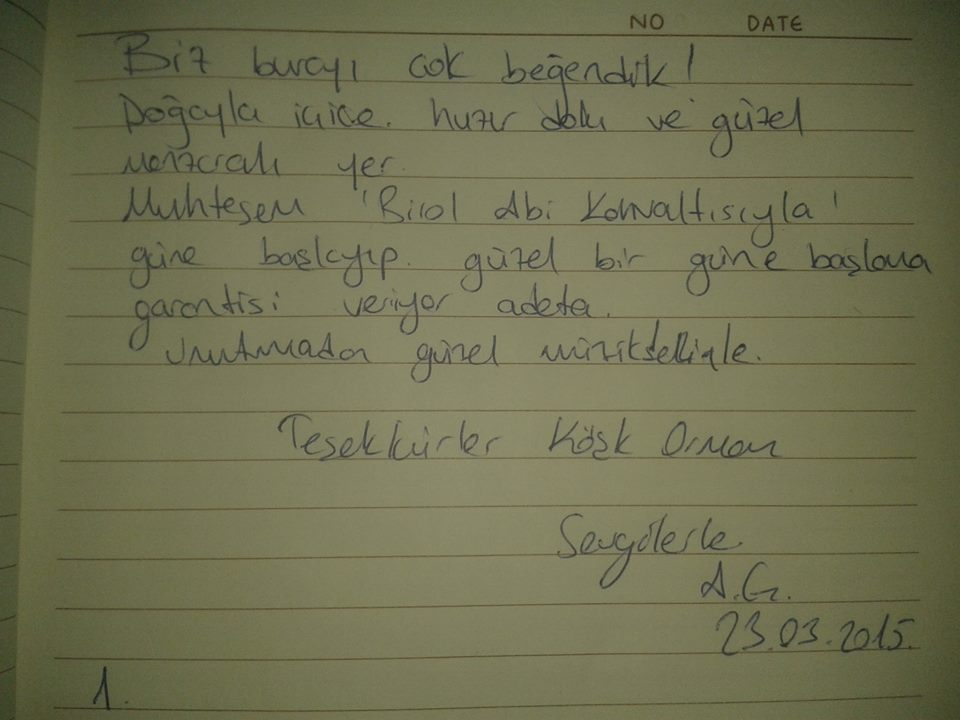 NO DATE
Biz burayı çok beğendik!
Doğayla içiçe. huzur dolu ve güzel
manzaralı yer.
Muhteşem 'Birol Abi Kahvaltısıyla'
güne başlayıp. güzel bir güne başlama
garantisi veriyor adeta.
Unutmadan güzel müzikselliğle.
Teşekkürler Köşk Orman
Sevgilerle
A.G.
23.03.2015.
1.